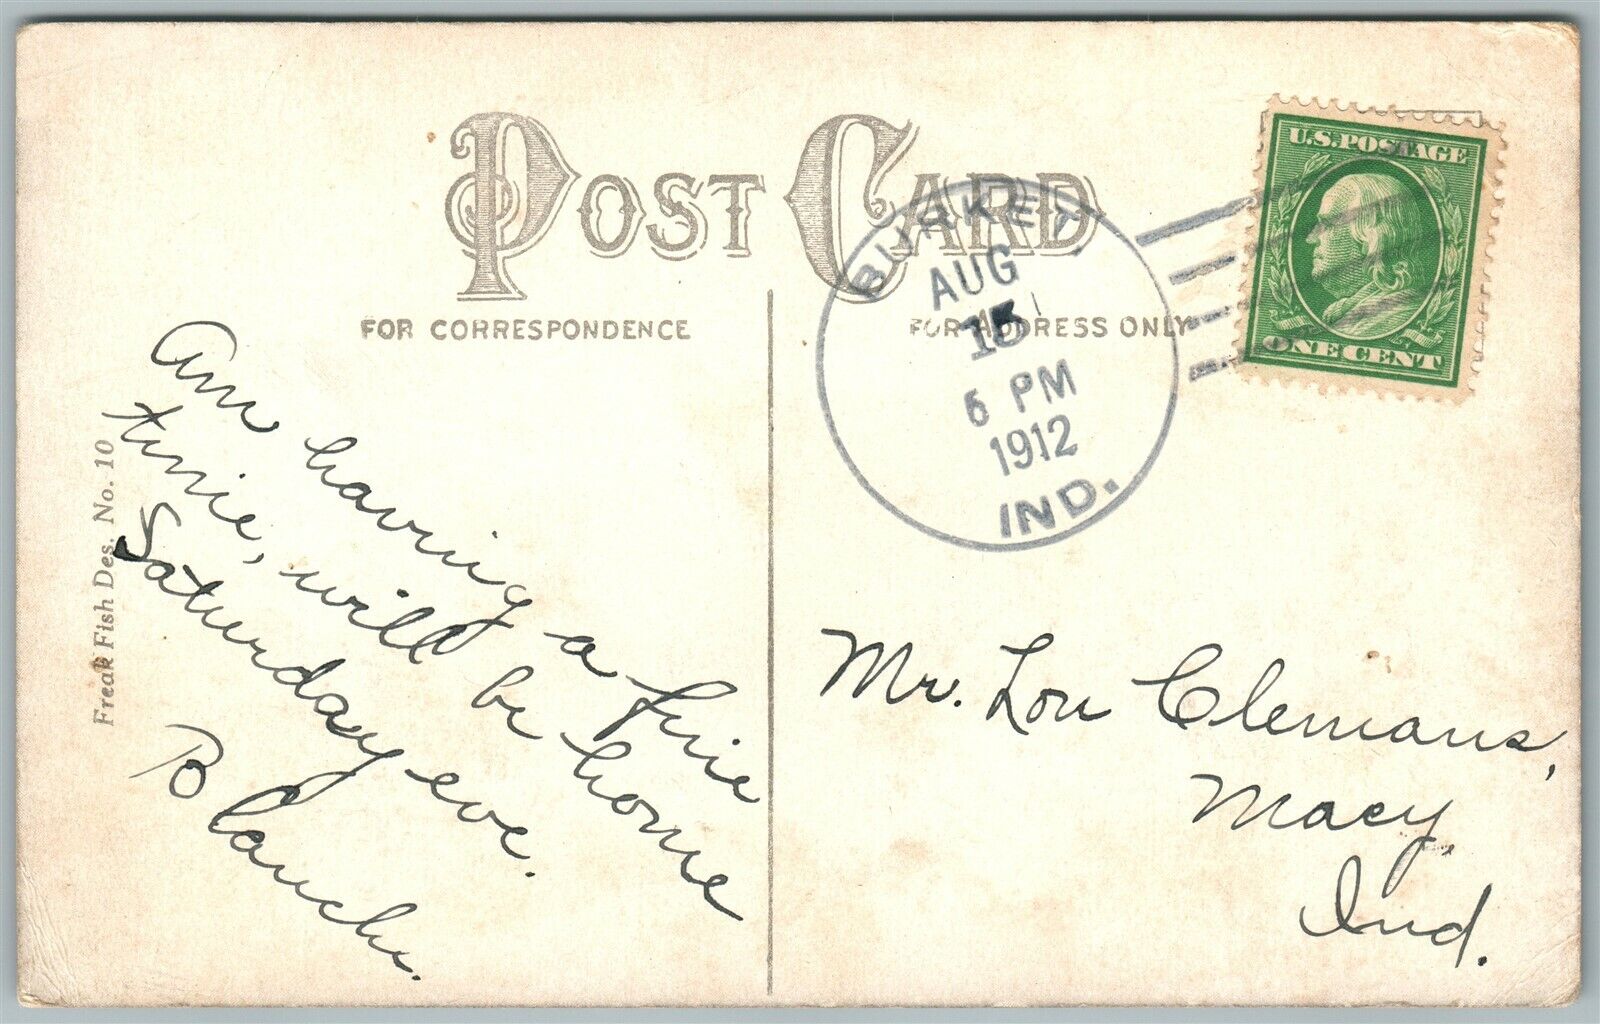 POST CARD
FOR CORRESPONDENCE
FOR ADDRESS ONLY
U.S. POSTAGE
ONE CENT
BURKET,
AUG
PM
1912
IND.
Am having a fine
time, will be home
Saturday eve.
Blanche.
Freak Fish Des. No. 10
Mr. Lou Clemans,
Macy,
Ind.